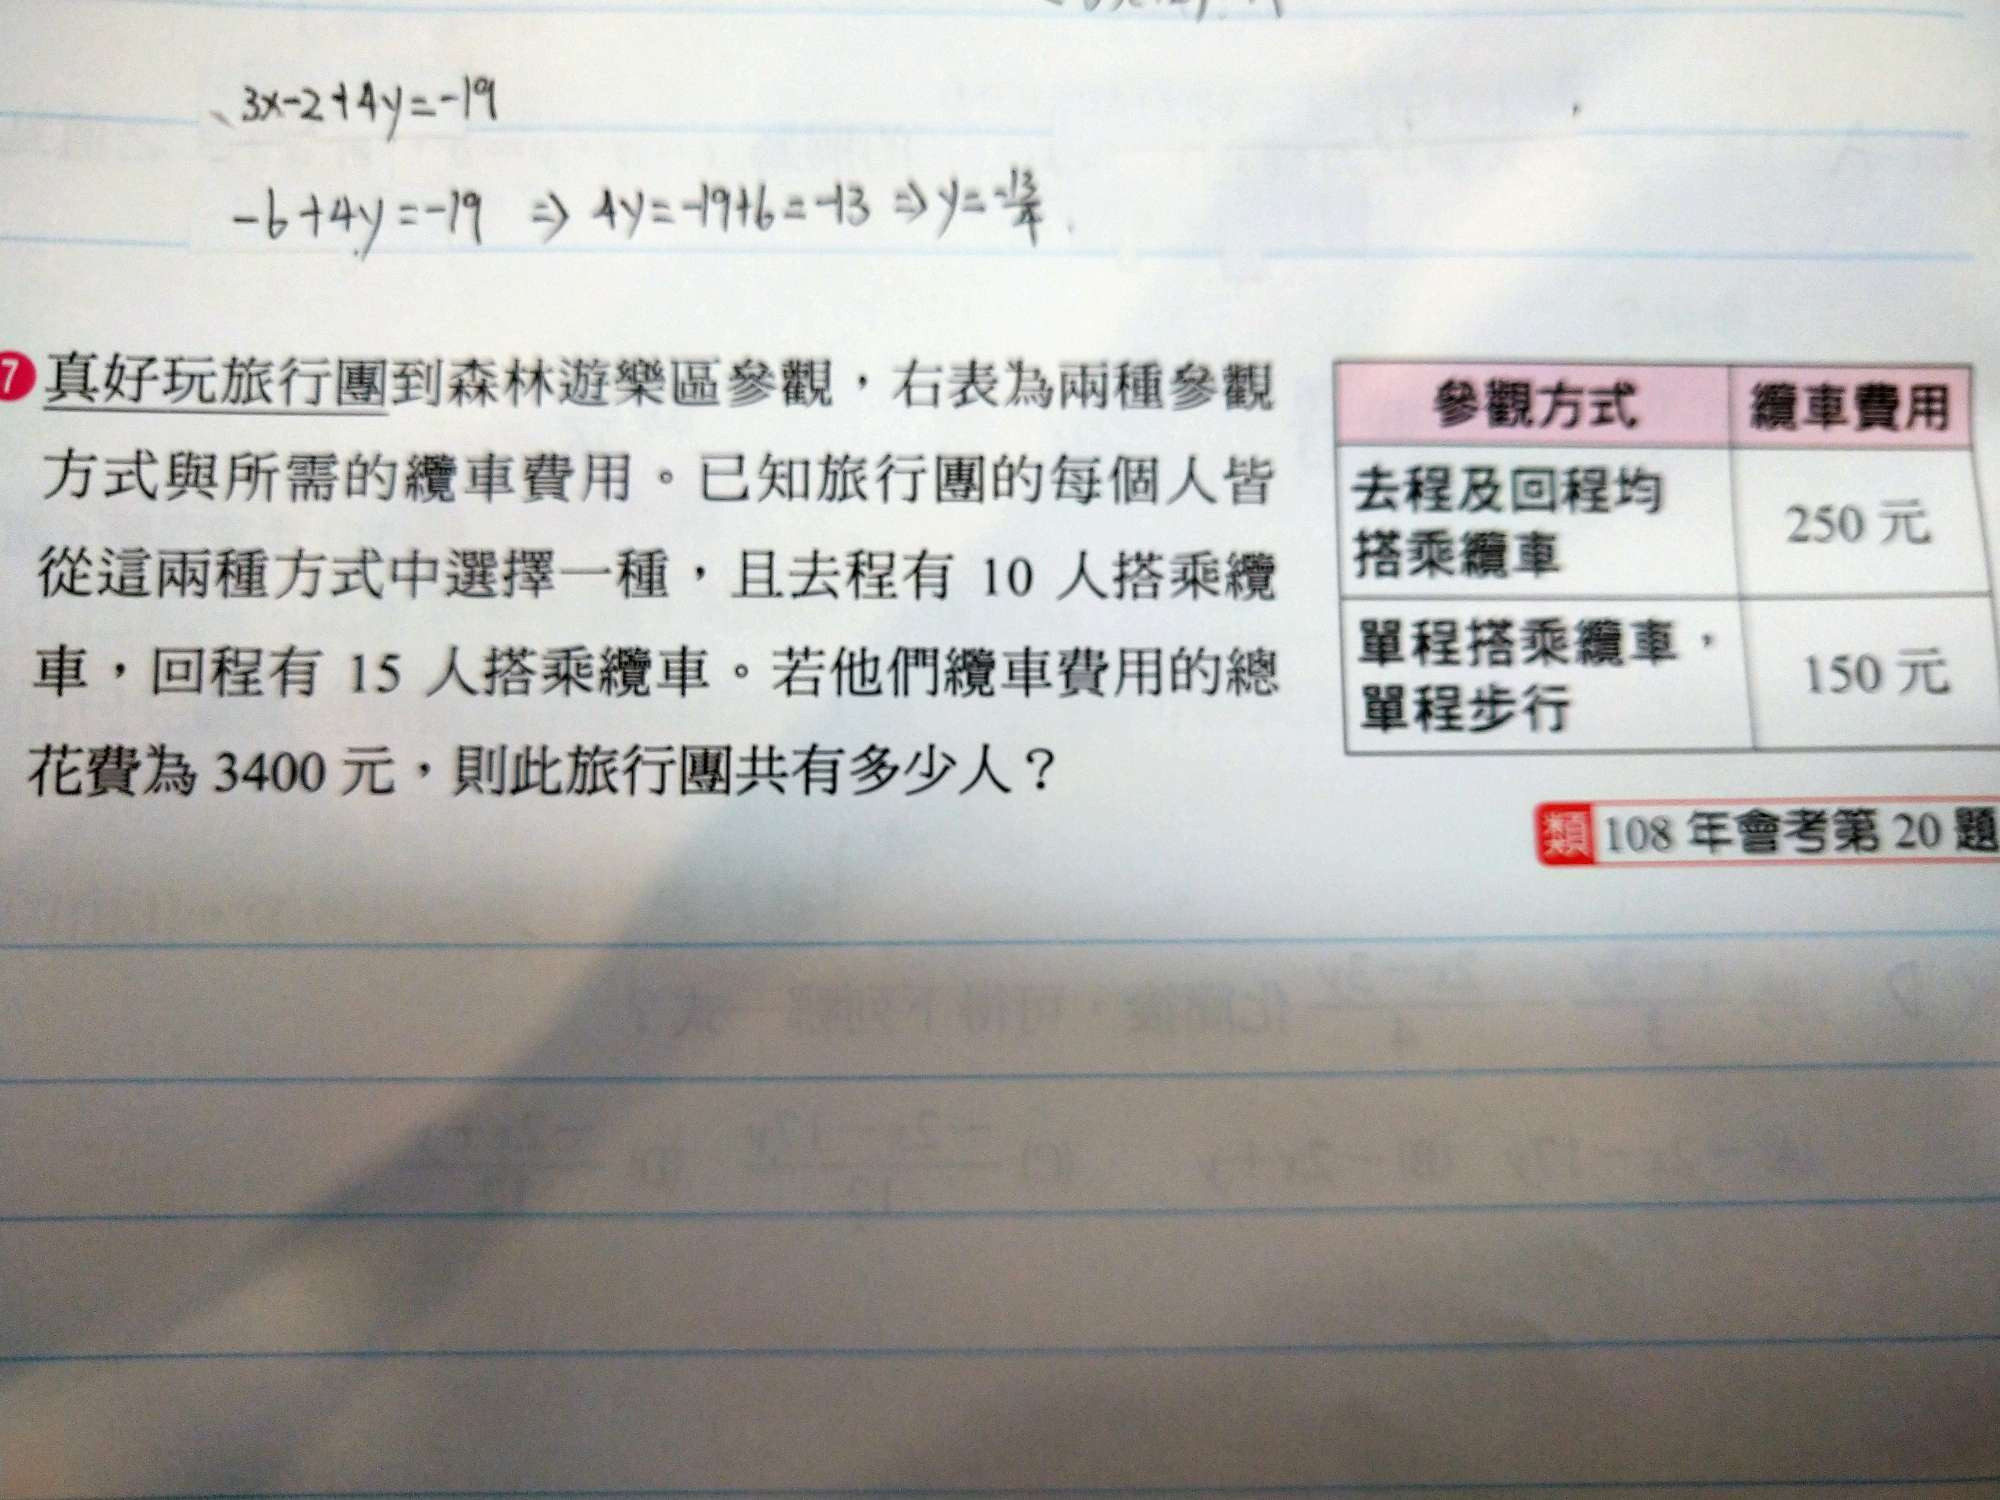 3x-2+4y=-19
-6+4y=-19 ⇒ 4y=-19+6=-13 ⇒ y=-13/4
7 真好玩旅行團到森林遊樂區參觀，右表為兩種參觀
方式與所需的纜車費用。已知旅行團的每個人皆
從這兩種方式中選擇一種，且去程有 10 人搭乘纜
車，回程有 15 人搭乘纜車。若他們纜車費用的總
花費為 3400 元，則此旅行團共有多少人？
參觀方式 纜車費用
去程及回程均
搭乘纜車
250 元
單程搭乘纜車，
單程步行
150 元
類 108 年會考第 20 題